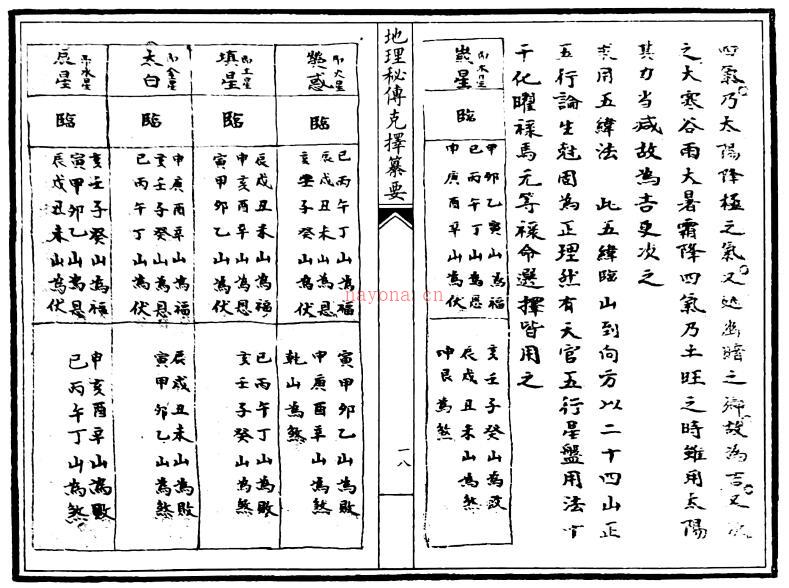 四氣乃太陽降極之氣又延幽暗之鄉故為吉又
之大寒谷雨大暑霜降四氣乃土旺之時雖用太陽
其力当减故為吉更次之
用五緯法 此五緯臨山到向方以二十四山正
五行論生尅固為正理然有天官五行星盤用法
干化曜祿馬元等祿命選擇皆用之
歲星 即木星
臨
甲卯乙寅山為福
巳丙午丁山為恩
申庚酉辛山為伏
亥壬子癸山為敗
辰戌丑未山為煞
坤艮為煞
地理秘傳克擇纂要
一八
熒惑 即火星
臨
巳丙午丁山為福
辰戌丑未山為恩
亥壬子癸山為伏
寅甲卯乙山為敗
申庚酉辛山為煞
乾山為煞
填星 即土星
臨
辰戌丑未山為福
申亥酉辛山為恩
寅甲卯乙山為伏
巳丙午丁山為敗
亥壬子癸山為煞
太白 即金星
臨
申庚酉辛山為福
亥壬子癸山為恩
巳丙午丁山為伏
辰戌丑未山為敗
寅甲卯乙山為煞
辰星 即水星
臨
亥壬子癸山為福
寅甲卯乙山為恩
辰戌丑未山為伏
申亥酉辛山為敗
巳丙午丁山為煞
nayona.cn